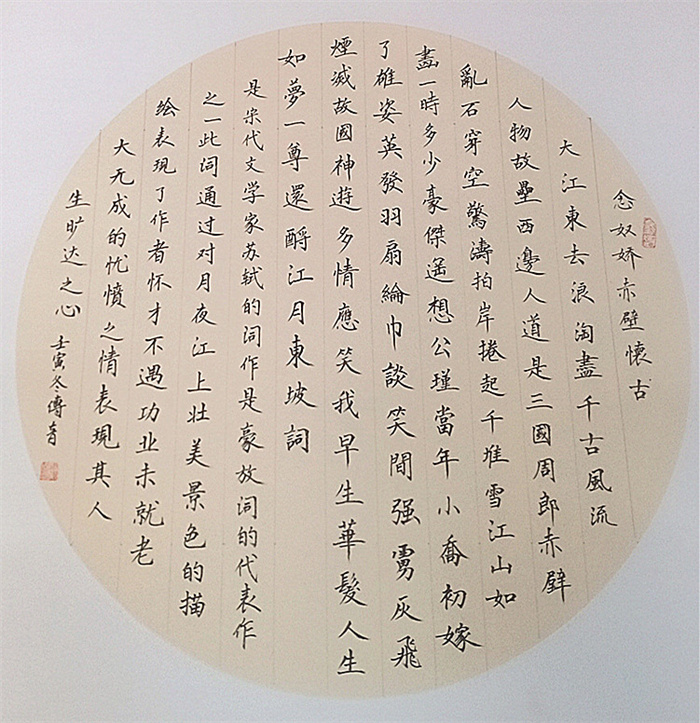 念奴娇赤壁懷古
大江東去浪淘盡千古風流
人物故壘西邊人道是三國周郎赤壁
亂石穿空驚濤拍岸捲起千堆雪江山如
畫一時多少豪傑遥想公瑾當年小喬初嫁
了雄姿英發羽扇綸巾談笑間强虜灰飛
煙滅故國神遊多情應笑我早生華髮人生
如夢一尊還酹江月東坡詞
是宋代文学家苏轼的词作是豪放词的代表作
之一此词通过对月夜江上壮美景色的描
绘表現了作者怀才不遇功业未就老
大无成的忧愤之情表現其人
生旷达之心
壬寅冬傳